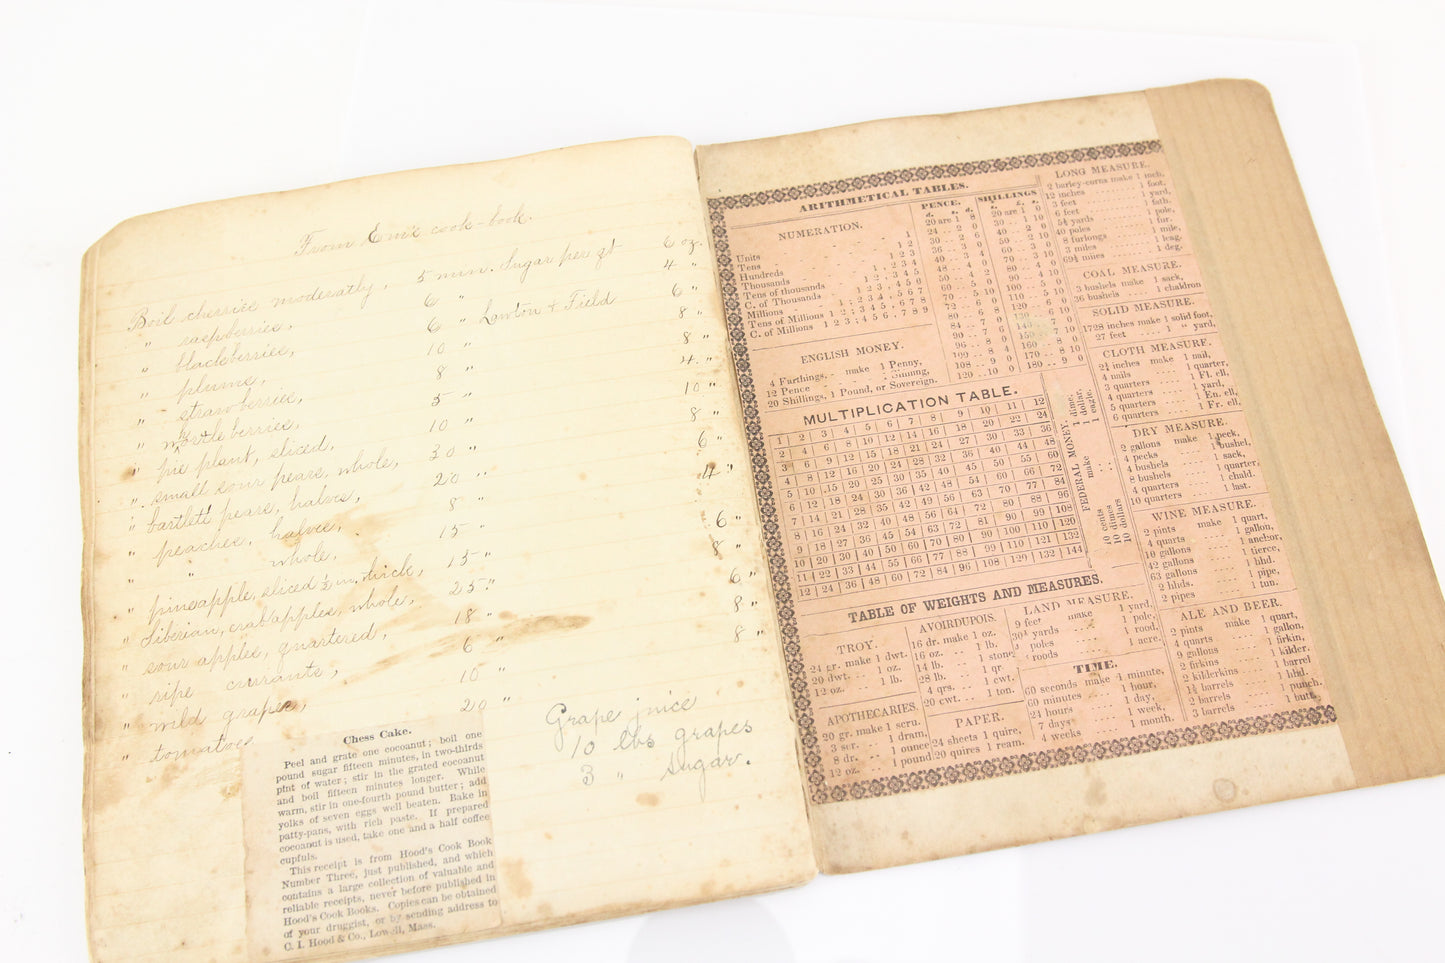 From Em's cook-book.
Boil cherries moderately, 5 min. Sugar per qt 6 oz.
" raspberries, 6 " 4 "
" blackberries, 6 " Lawton & Field 6 "
" plums, 10 " 8 "
" strawberries, 8 " 8 "
" whortleberries, 5 " 4 "
" pie plant, sliced, 10 " 10 "
" small sour pears, whole, 30 " 8 "
" bartlett pears, halves, 20 " 6 "
" peaches, halves, 8 " 4 "
" " whole, 15 "
" pineapple, sliced ½ in. thick, 15 " 6 "
" Siberian, crab apples, whole, 25 " 8 "
" sour apples, quartered, 18 " 6 "
" ripe currants, 6 " 8 "
" wild grapes, 10 " 8 "
" tomatoes 20 "
Grape juice
10 lbs grapes
3 " sugar.
Chess Cake.
Peel and grate one cocoanut; boil one
pound sugar fifteen minutes, in two-thirds
pint of water; stir in the grated cocoanut
and boil fifteen minutes longer. While
warm, stir in one-fourth pound butter; add
yolks of seven eggs well beaten. Bake in
patty-pans, with rich paste. If prepared
cocoanut is used, take one and a half coffee
cupfuls.
This receipt is from Hood's Cook Book
Number Three, just published, and which
contains a large collection of valuable and
reliable receipts, never before published in
Hood's Cook Books. Copies can be obtained
of your druggist, or by sending address to
C. I. Hood & Co., Lowell, Mass.
ARITHMETICAL TABLES.
NUMERATION.
Units 1
Tens 1 2
Hundreds 1 2 3
Thousands 1, 2 3 4
Tens of thousands 1 2, 3 4 5
C. of Thousands
Millions 1, 2 3 4, 5 6 7
Tens of Millions 1 2, 3 4 5, 6 7 8
C. of Millions 1 2 3, 4 5 6, 7 8 9
ENGLISH MONEY.
4 Farthings, make 1 Penny,
12 Pence 1 Shilling,
20 Shillings, 1 Pound, or Sovereign.
PENCE.
d. s. d.
20 are 1 8
24 .. 2 0
30 .. 2 6
36 .. 3 0
40 .. 3 4
48 .. 4 0
50 .. 4 2
60 .. 5 0
70 .. 5 10
72 .. 6 0
80 .. 6 8
84 .. 7 0
90 .. 7 6
96 .. 8 0
100 .. 8 4
108 .. 9 0
120 .. 10 0
SHILLINGS
s. £. s.
20 are 1 0
30 .. 1 10
40 .. 2 0
50 .. 2 10
60 .. 3 0
70 .. 3 10
80 .. 4 0
90 .. 4 10
100 .. 5 0
110 .. 5 10
120 .. 6 0
160 .. 8 0
170 .. 8 10
180 .. 9 0
MULTIPLICATION TABLE.
1 2 3 4 5 6 7 8 9 10 11 12
2 4 6 8 10 12 14 16 18 20 22 24
3 6 9 12 15 18 21 24 27 30 33 36
4 8 12 16 20 24 28 32 36 40 44 48
5 10 15 20 25 30 35 40 45 50 55 60
6 12 18 24 30 36 42 48 54 60 66 72
7 14 21 28 35 42 49 56 63 70 77 84
8 16 24 32 40 48 56 64 72 80 88 96
9 18 27 36 45 54 63 72 81 90 99 108
10 20 30 40 50 60 70 80 90 100 110 120
11 22 33 44 55 66 77 88 99 110 121 132
12 24 36 48 60 72 84 96 108 120 132 144
FEDERAL MONEY.
10 cents make 1 dime,
10 dimes .. 1 dollar,
10 dollars .. 1 eagle.
LONG MEASURE.
2 barley-corns make 1 inch,
12 inches 1 foot,
3 feet 1 yard,
6 feet 1 fath.
5½ yards 1 pole,
40 poles 1 fur.
8 furlongs 1 mile,
3 miles 1 leag.
69½ miles 1 deg.
COAL MEASURE.
3 bushels make 1 sack,
36 bushels 1 chaldron
SOLID MEASURE.
1728 inches make 1 solid foot,
27 feet 1 " yard,
CLOTH MEASURE.
2¼ inches make 1 nail,
4 nails 1 quarter,
3 quarters 1 Fl. ell,
4 quarters 1 yard,
5 quarters 1 En. ell,
6 quarters 1 Fr. ell,
DRY MEASURE.
2 gallons make 1 peck,
4 pecks 1 bushel,
4 bushels 1 sack,
8 bushels 1 quarter,
4 quarters 1 chald.
10 quarters 1 last.
WINE MEASURE.
2 pints make 1 quart,
4 quarts 1 gallon,
10 gallons 1 anchor,
42 gallons 1 tierce,
63 gallons 1 hhd.
2 hhds. 1 pipe,
2 pipes 1 tun.
ALE AND BEER.
2 pints make 1 quart,
4 quarts 1 gallon,
9 gallons 1 firkin,
2 firkins 1 kilder.
2 kilderkins 1 barrel
1½ barrels 1 hhd.
2 barrels 1 punch.
3 barrels 1 butt,
TABLE OF WEIGHTS AND MEASURES.
TROY.
24 gr. make 1 dwt.
20 dwt. 1 oz.
12 oz. 1 lb.
APOTHECARIES.
20 gr. make 1 scru.
3 scr. 1 dram,
8 dr. 1 ounce
12 oz. 1 pound
AVOIRDUPOIS.
16 dr. make 1 oz.
16 oz. 1 lb.
14 lb. 1 stone,
28 lb. 1 qr
4 qrs. 1 cwt.
20 cwt. 1 ton.
PAPER.
24 sheets 1 quire,
20 quires 1 ream.
LAND MEASURE.
9 feet make 1 yard,
30¼ yards 1 pole,
poles 1 rood,
roods 1 acre.
TIME.
60 seconds make 1 minute,
60 minutes 1 hour,
24 hours 1 day,
7 days 1 week,
4 weeks 1 month.